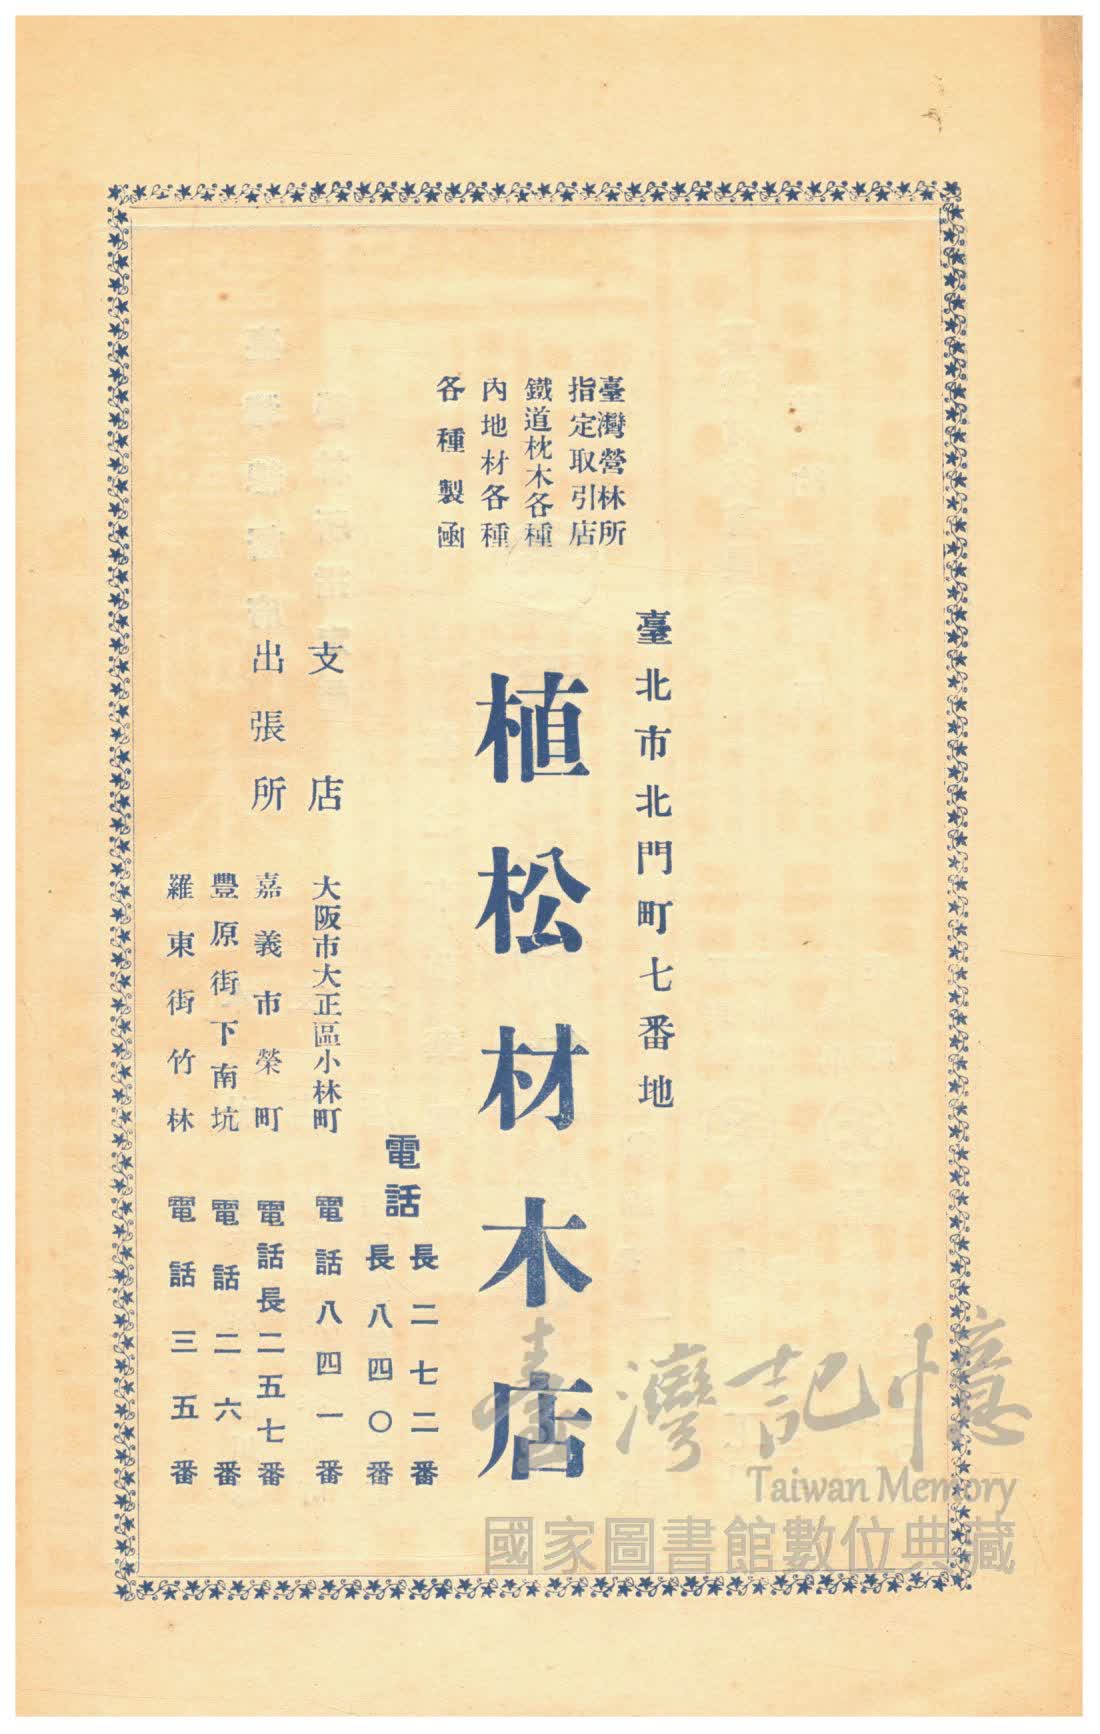 臺灣營林所
指定取引店
鐵道枕木各種
內地材各種
各種製函
臺北市北門町七番地
植松材木店
電話
長二七二番
長八四〇番
支店
大阪市大正區小林町
電話八四一番
出張所
嘉義市榮町
電話長二五七番
豐原街下南坑
電話二六番
羅東街竹林
電話三五番
臺灣記憶
Taiwan Memory
國家圖書館數位典藏